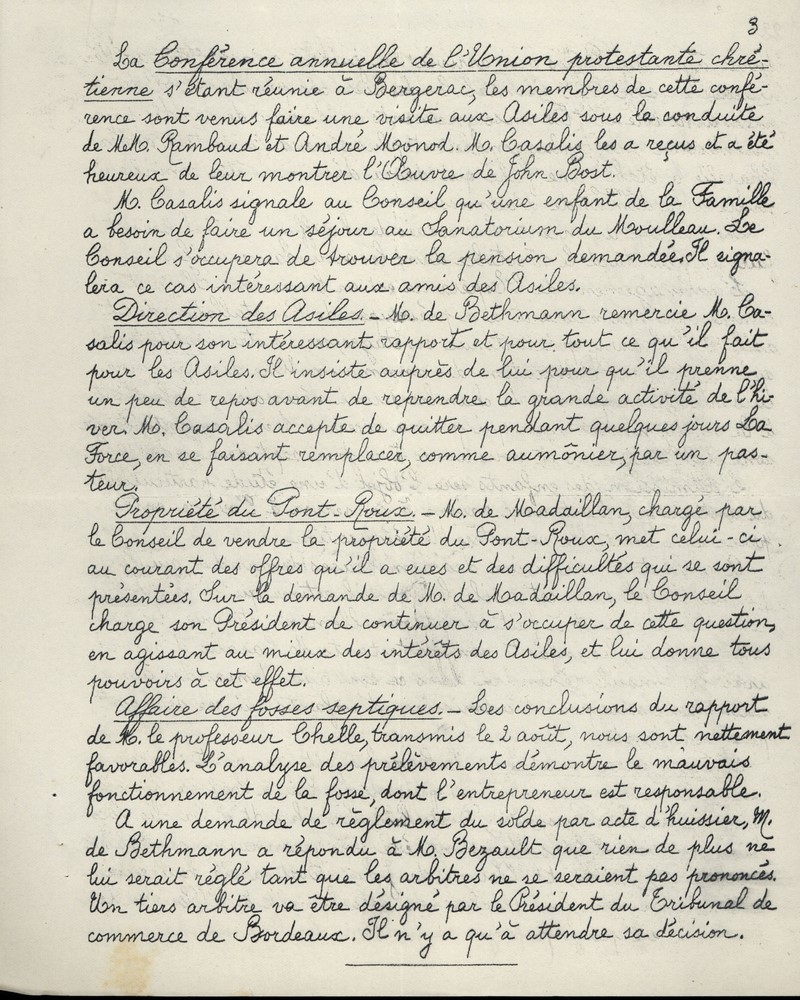 3
La Conférence annuelle de l'Union protestante chré-
tienne s'étant réunie à Bergerac, les membres de cette confé-
rence sont venus faire une visite aux Asiles sous la conduite
de MM. Rambaud et André Monod. M. Casalis les a reçus et a été
heureux de leur montrer l'Œuvre de John Bost.
M. Casalis signale au Conseil qu'une enfant de la Famille
a besoin de faire un séjour au Sanatorium du Moulleau. Le
Conseil s'occupera de trouver la pension demandée. Il signa-
lera ce cas intéressant aux amis des Asiles.
Direction des Asiles. - M. de Bethmann remercie M. Ca-
salis pour son intéressant rapport et pour tout ce qu'il fait
pour les Asiles. Il insiste auprès de lui pour qu'il prenne
un peu de repos avant de reprendre la grande activité de l'hi-
ver. M. Casalis accepte de quitter pendant quelques jours La
Force, en se faisant remplacer, comme aumônier, par un pas-
teur.
Propriété du Pont-Roux. - M. de Madaillan, chargé par
le Conseil de vendre la propriété du Pont-Roux, met celui-ci
au courant des offres qu'il a eues et des difficultés qui se sont
présentées. Sur la demande de M. de Madaillan, le Conseil
charge son Président de continuer à s'occuper de cette question,
en agissant au mieux des intérêts des Asiles, et lui donne tous
pouvoirs à cet effet.
Affaire des fosses septiques. - Les conclusions du rapport
de M. le professeur Chelle, transmis le 2 août, nous sont nettement
favorables. L'analyse des prélèvements démontre le mauvais
fonctionnement de la fosse, dont l'entrepreneur est responsable.
A une demande de règlement du solde par acte d'huissier, M.
de Bethmann a répondu à M. Bezault que rien de plus ne
lui serait réglé tant que les arbitres ne se seraient pas prononcés.
Un tiers arbitre va être désigné par le Président du Tribunal de
commerce de Bordeaux. Il n'y a qu'à attendre sa décision.